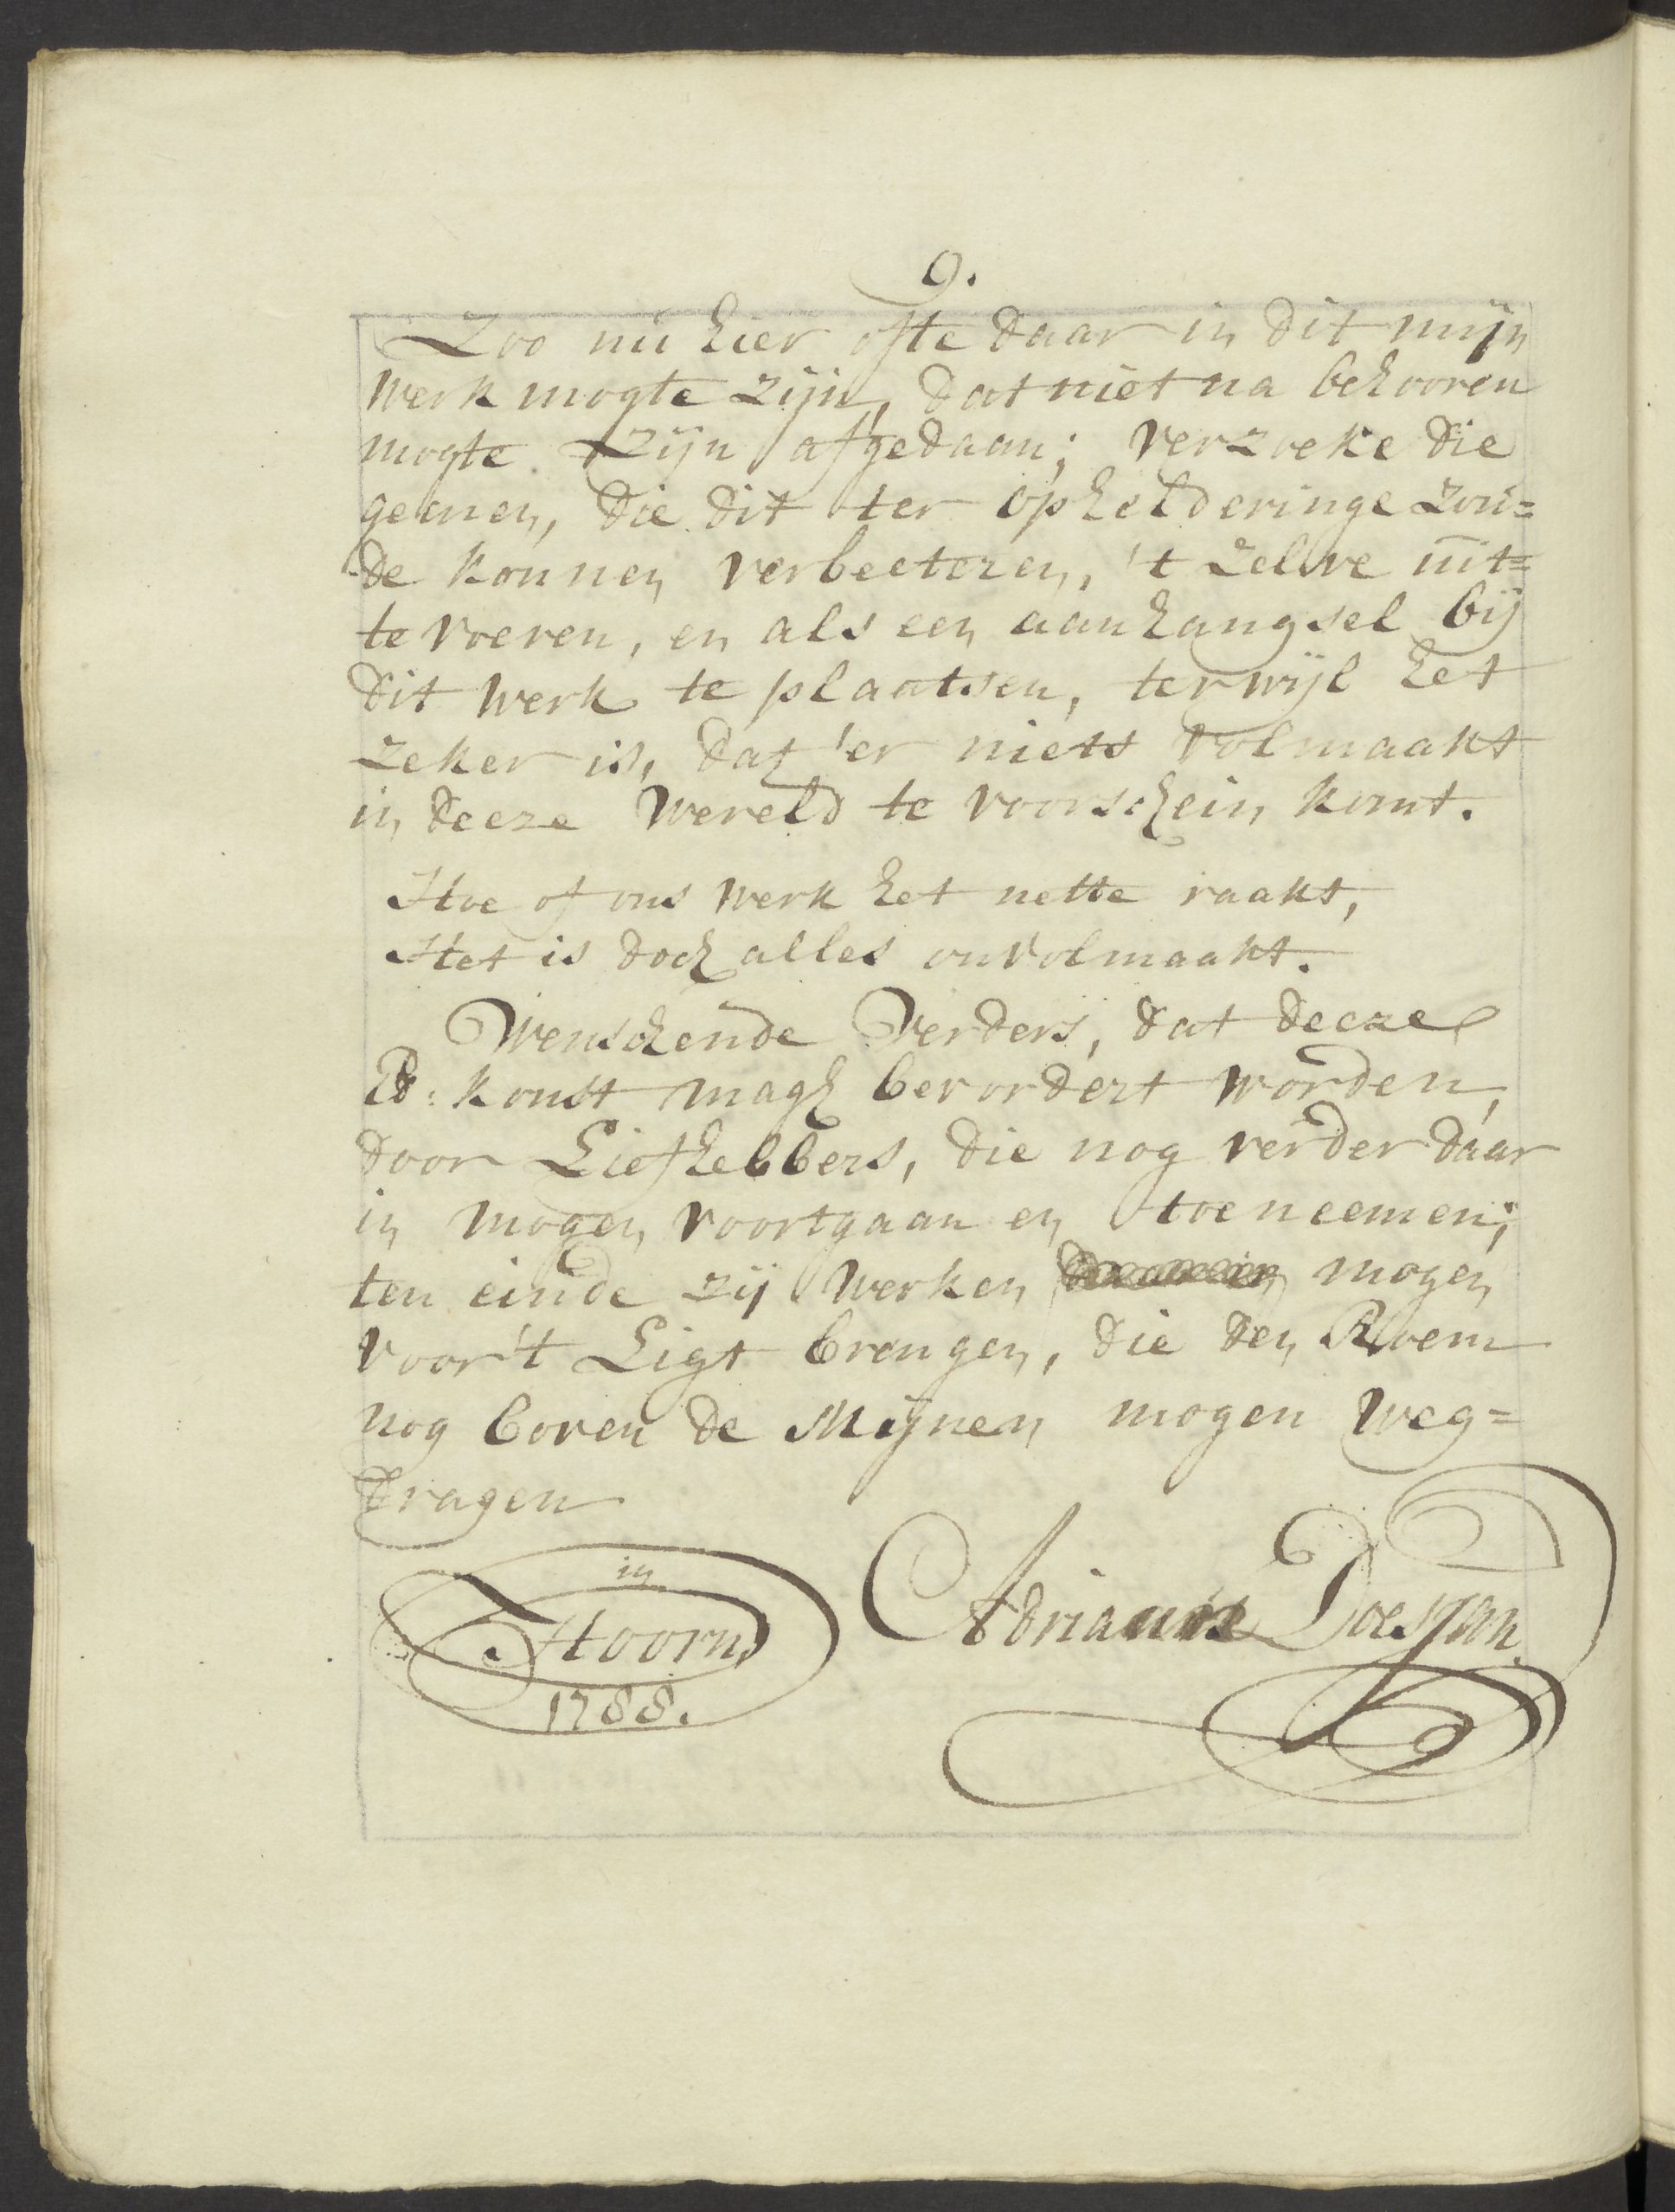 9.
Zoo nu hier ofte daar in dit mijn
werk mogte zijn, dat niet na behooren
mogte zijn afgedaan; verzoeke die
geenen, die dit ter ophelderinge zou=
de konnen verbeeteren, 't zelve uit=
te voeren, en als een aanhangsel bij
dit werk te plaatsen, terwijl het
zeker is, dat 'er niets volmaakt
in deeze wereld te voorschein komt.
Hoe of ons werk het nette raakt,
Het is doch alles onvolmaakt.
Wenschende Verders, dat deeze
Ed: konst magh bevordert worden,
door Liefhebbers, die nog verder daar
in mogen voortgaan en toeneemen;
ten einde zij werken mogen
voor 't Ligt brengen, die den Roem
nog boven de Mijnen mogen weg=
dragen
in
Hoorn,
1788.
Adrianus Doesjan.